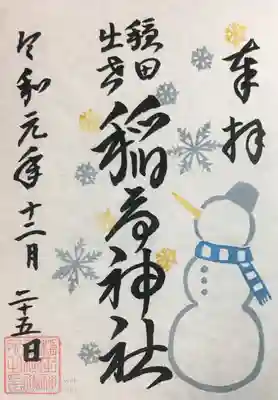 奉拝
穏田
出世
稲荷神社
令和元年十二月二十五日